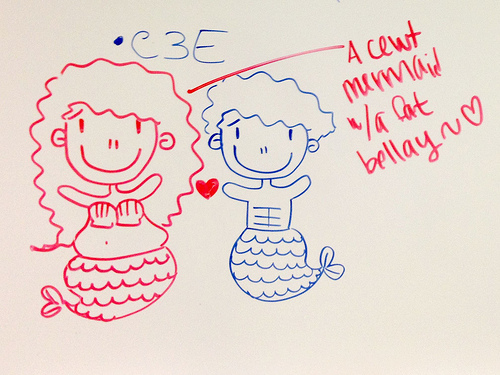 •C3E
A cewt
mermaid
w/a fat
bellay~♡